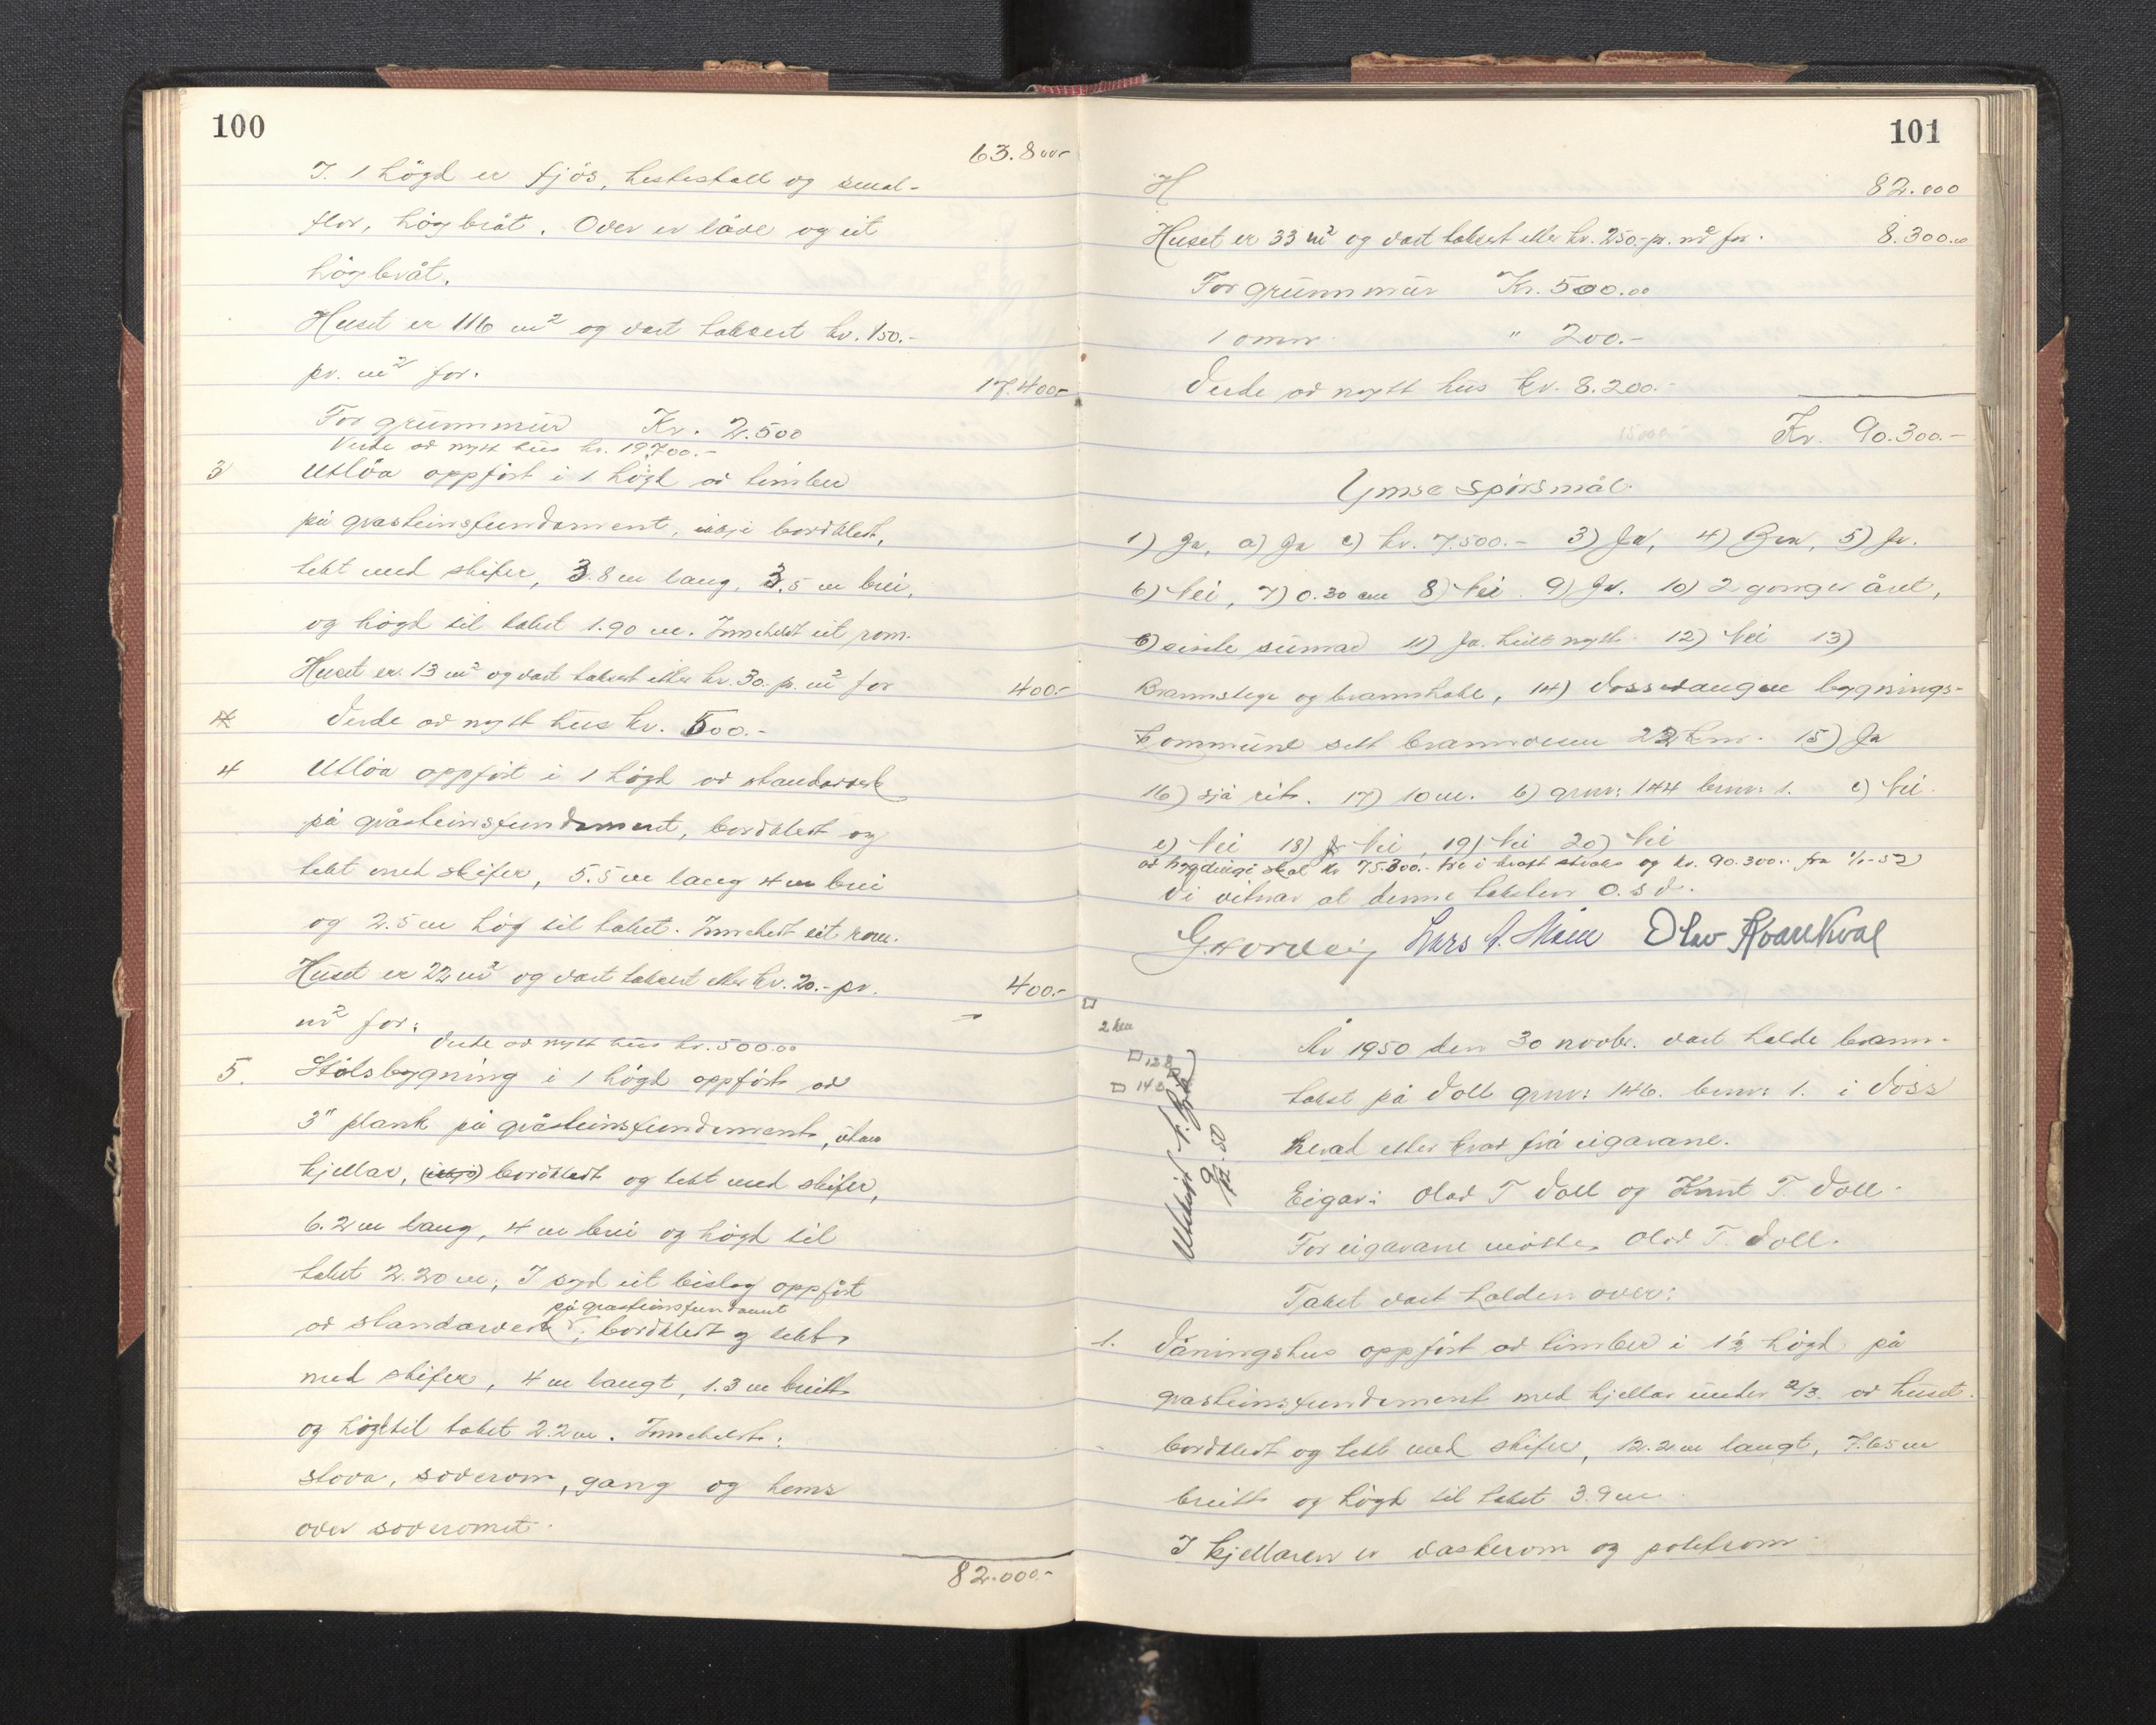 100
63.800-
I. 1 högd er fjös, hestestall og smal-
flor, högbråt. Over er låve og eit
högbråt.
Huset er 116 m² og vart taksert kr. 150.-
pr. m² for.
17.400-
For grunnmur Kr. 2.500
Verde av nytt hus kr. 19.700.-
3 Utlöa oppfört i 1 högd av timber
på gråsteinsfundament, ikkje bordkledt,
tekt med skifer, 3.8 m lang, 3.5 m brei,
og högd til taket 1.90 m. Inneheld eit rom.
Huset er 13 m² og vart taksert etter kr. 30.- pr. m² for
400.-
Verde av nytt hus kr. 500.-
4 Utlöa oppfört i 1 högd av standarverk
på gråsteinsfundament, bordkledt og
tekt med skifer, 5.5 m lang 4 m brei
og 2.5 m hög til taket. Inneheld eit rom.
Huset er 22 m² og vart taksert etter kr. 20.- pr.
400.-
m² for:
Verde av nytt hus kr. 500.00
5. Stölsbygning i 1 högd oppfört av
3" plank på gråsteinsfundament, utan
kjellar, (ikkje) bordkledt og tekt med skifer,
6.2 m lang, 4 m brei og högd til
taket 2.20 m, I syd eit bislag oppfört
på gråsteinsfundament
av standarverk, bordkledt og tekt
med skifer, 4 m langt, 1.3 m breitt
og högd til taket 2.2 m. Inneheld:
stova, soverom, gang og hems
over soveromet.
82.000.-
101
H
82.000
Huset er 33 m² og vart taksert etter kr. 250.- pr. m² for.
8.300.00
For grunnmur Kr. 500.00
1 omn " 200.-
Verde av nytt hus kr. 8.200.-
Kr. 90.300.-
Ymse spörsmål.
1) Ja, a) Ja c) kr. 7.500.- 3) Ja, 4) Bra, 5) Ja.
6) Nei, 7) 0.30 cm 8) Nei. 9) Ja. 10) 2 gonger året,
b) siste sumar 11) Ja. heilt nytt. 12) Nei 13)
Brannstige og brannhake, 14) Vossevangen bygnings-
kommune sitt brannvern 22 km. 15) Ja
16) sjå rit. 17) 10 m. b) gnr: 144 bnr: 1. c) Nei.
e) Nei 18) Nei, 19) Nei 20) Nei
av bygdingi skal kr 75.300.- tre i kraft straks og kr. 90.300.- fra 1/1-52
Vi vitnar at denne taksten o.s.v.
Lars Olav Kvarekval
2 km
År 1950 den 30 novbr. vart halde brann-
takst på Voll gnr: 146. bnr: 1. i Voss
herad etter krav frå eigarane.
Eigar: Olav T Voll og Knut T. Voll.
For eigarane mötte, Olav T. Voll.
Takst vart halden over:
1. Våningshus oppfört av timber i 1½ högd på
gråsteinsfundament med kjellar under 2/3. av huset.
bordkledt og tekt med skifer, 12.2 m langt, 7.65 m
breitt og högd til taket 3.9 m
I kjellaren er vaskerom og potetrom